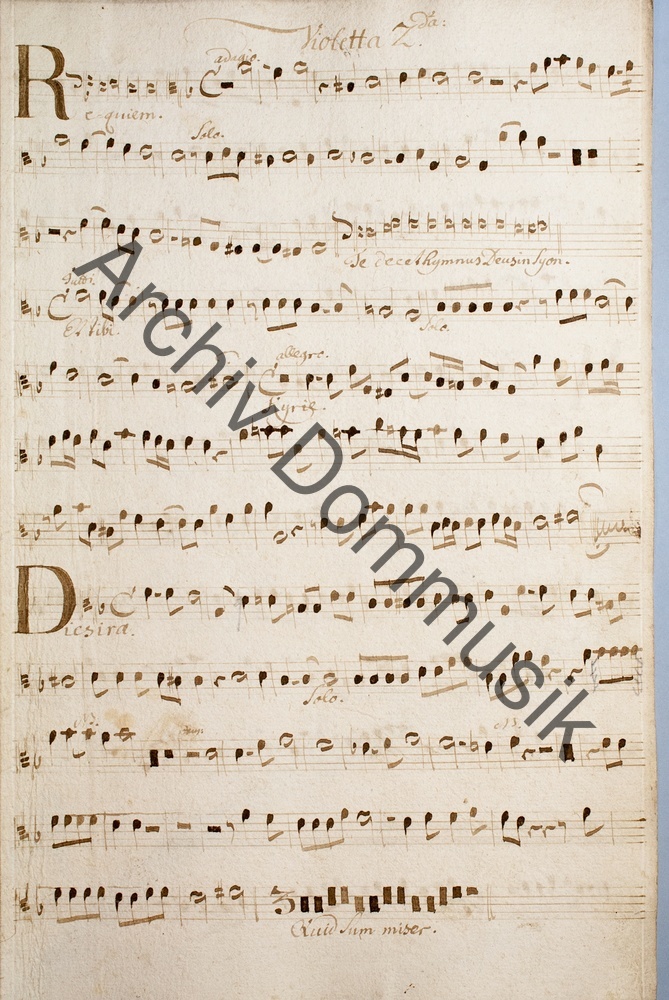 Violetta 2.da:
adagio.
Requiem.
Solo.
Te decet hymnus Deus in Syon.
Tutti.
Et tibi
Solo.
allegro.
Kyrie.
Dies iræ.
Solo.
3
Quid Sum miser.
Archiv Dommusik